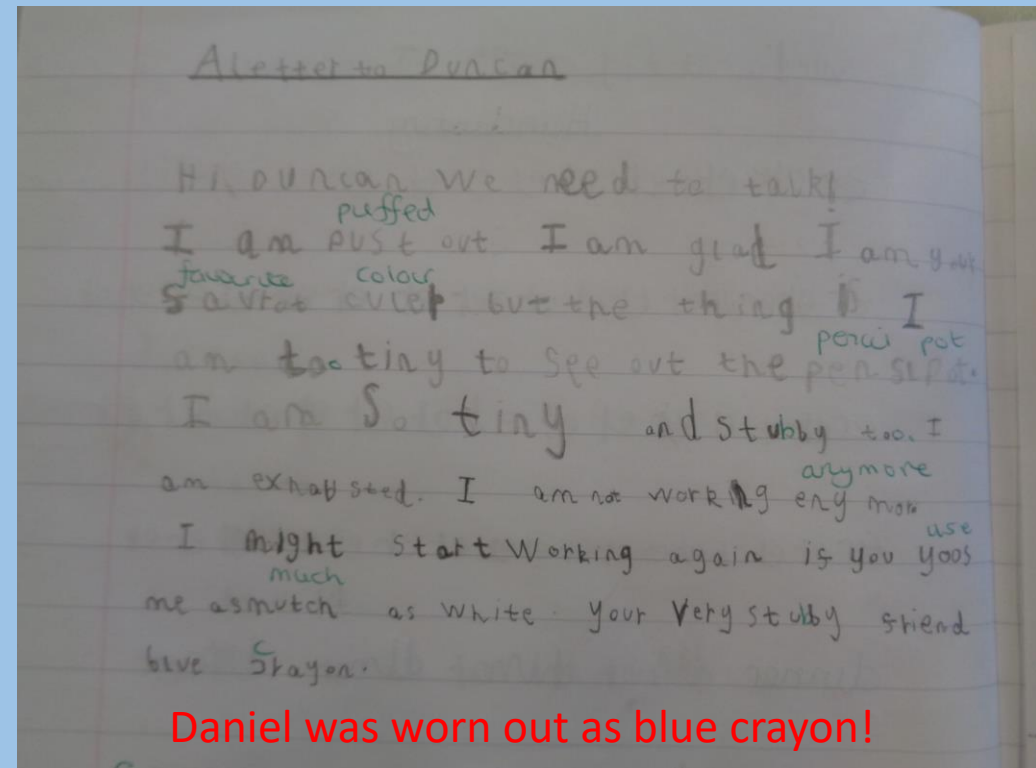 A letter to Duncan
Hi Duncan We need to talk!
puffed
I am pust out I am glad I am your
favourite colour
favrot culer but the thing is I
pencil pot
am too tiny to see out the pensipot.
I am So tiny and stubby too. I
anymore
am exhausted. I am not working eny more
use
I might start working again if you yoos
much
me as mutch as white. Your Very stubby friend
c
blue crayon.
Daniel was worn out as blue crayon!